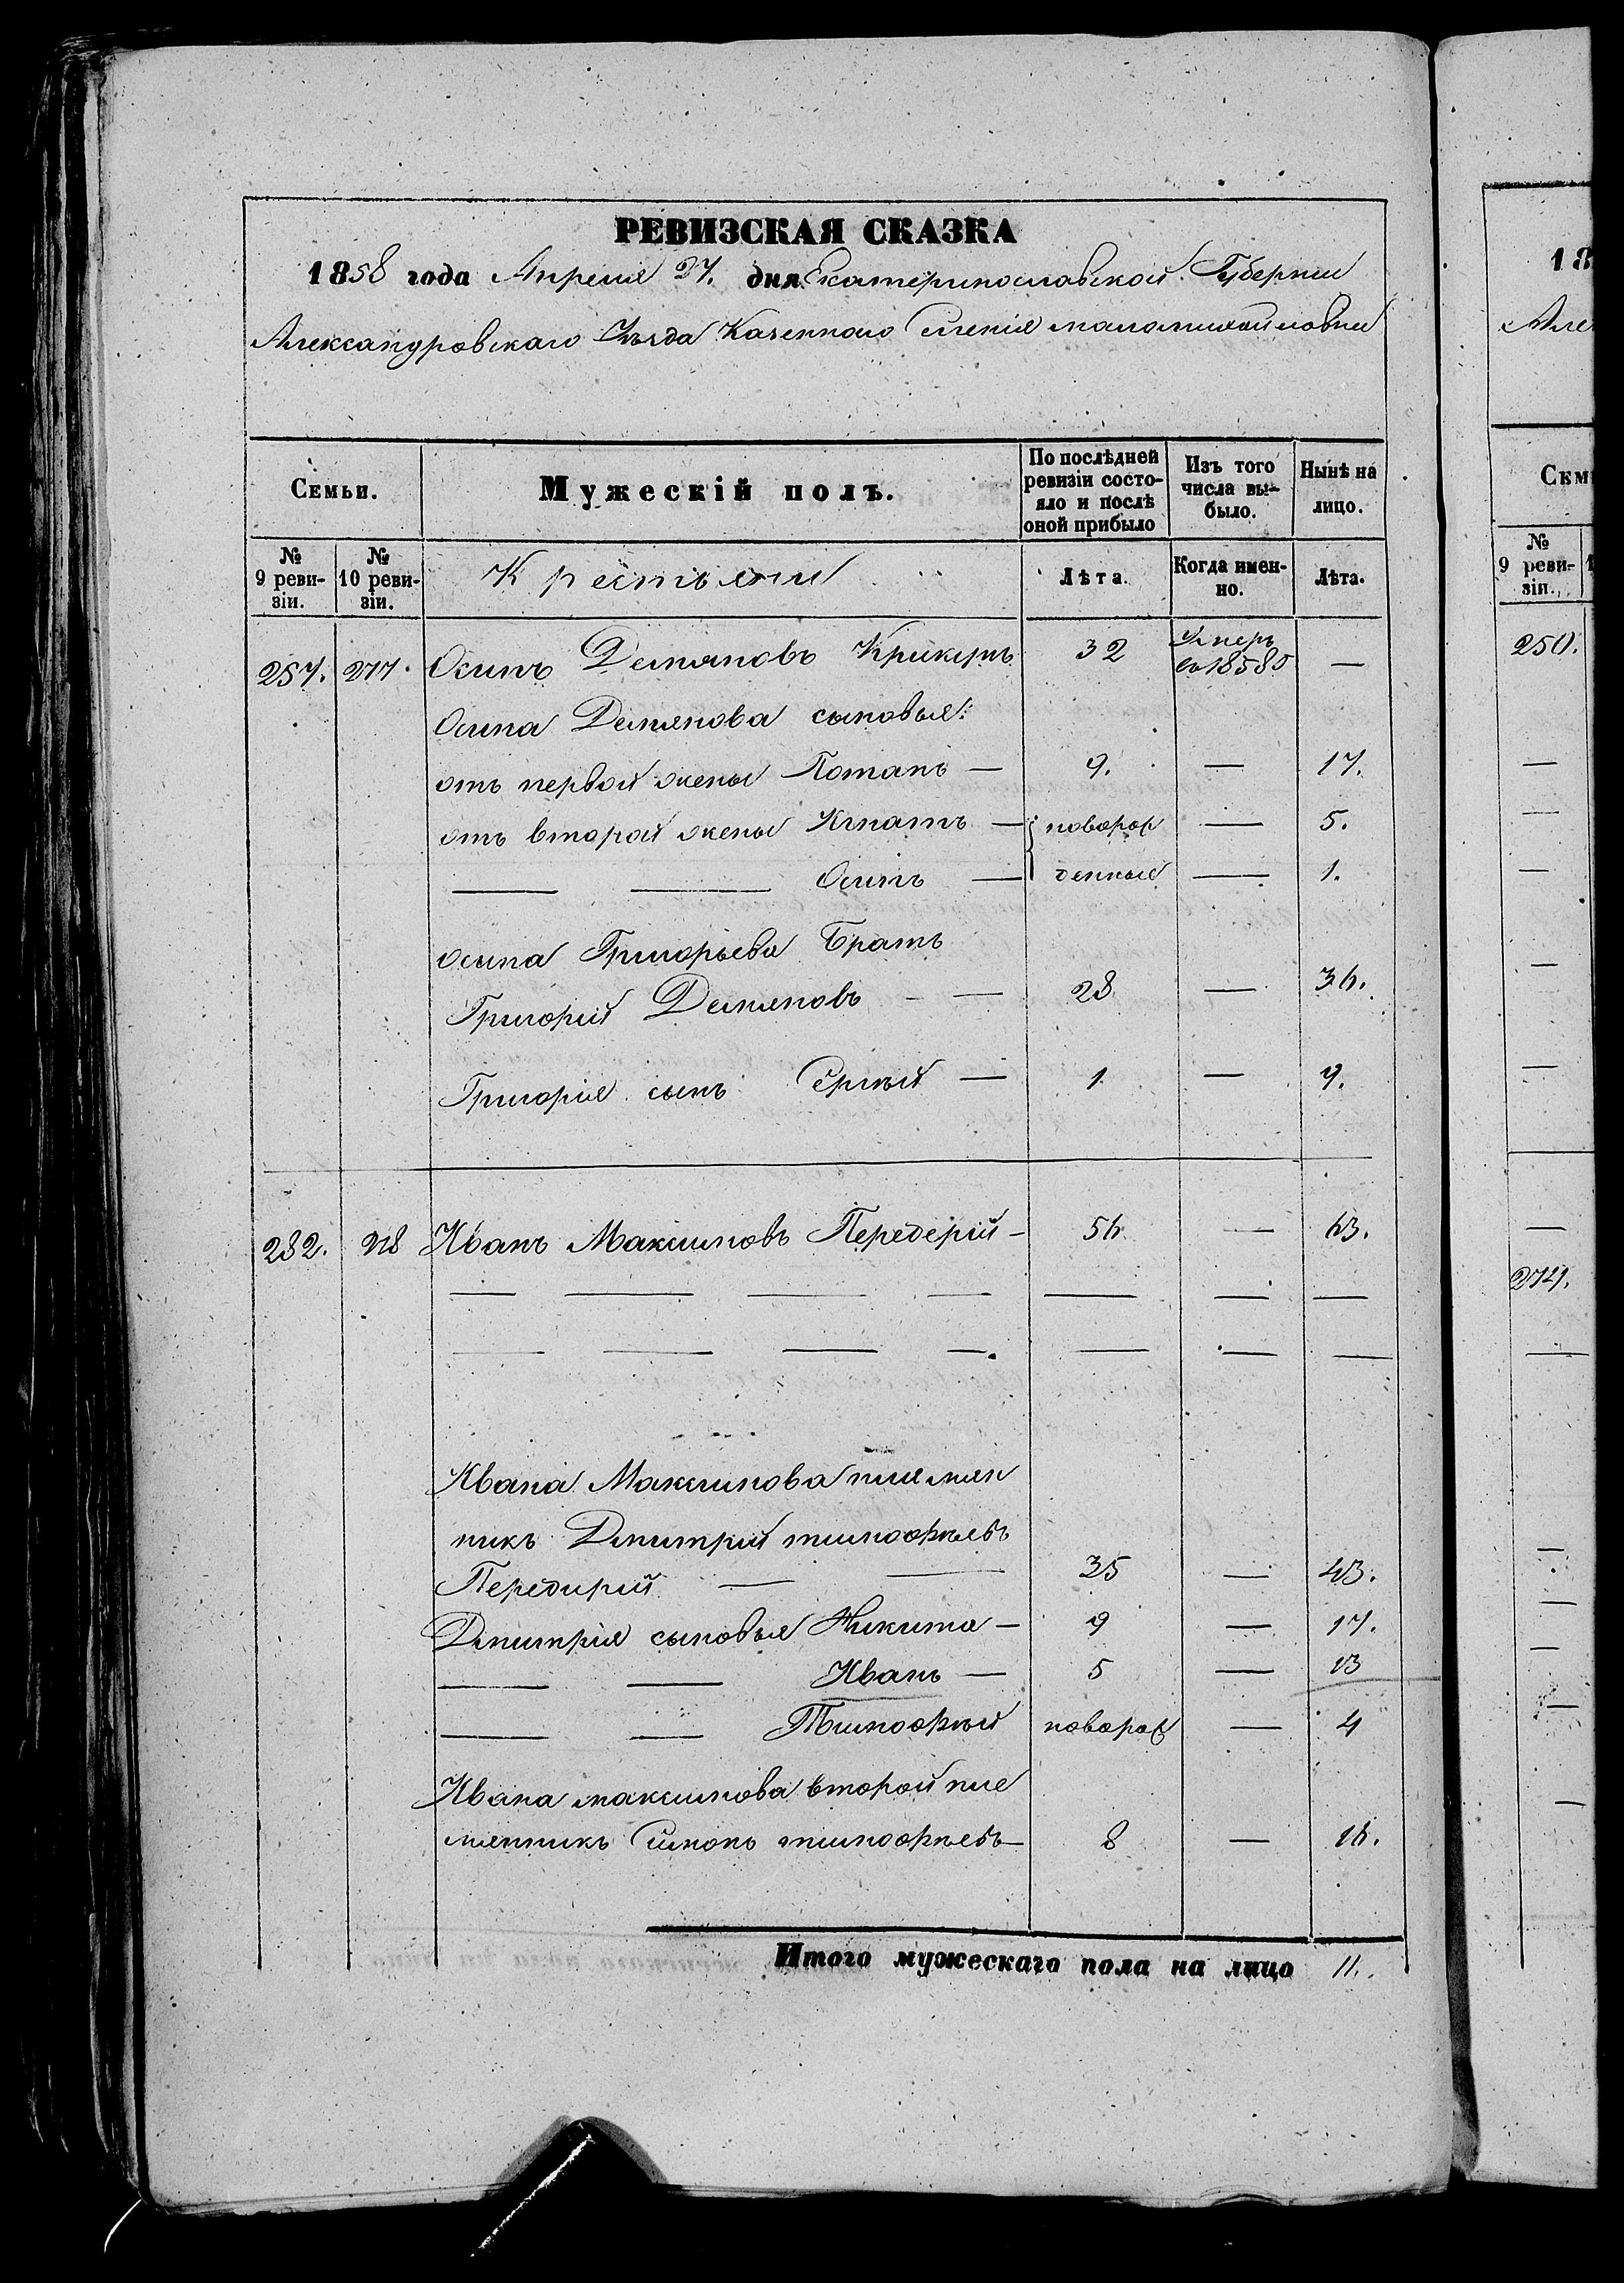 РЕВИЗСКАЯ СКАЗКА
1858 года Апреля 27. дня Екатеринославской Губернии
Александровскаго Уѣзда Казеннаго Селенія маломихайловки
Семьи.
Мужескій полъ.
По послѣдней ревизіи состо-
яло и послѣ оной прибыло
Изъ того числа вы-
было.
Нынѣ на лицо.
№ 9 реви-
зіи.
№ 10 реви-
зіи.
Крестьяни
Лѣта.
Когда имен-
но.
Лѣта.
257. 277. Осипъ Демяновъ Крикунъ 32 Умеръ
въ 1858 —
Осипа Демянова сыновья:
отъ первой жены Потапъ — 9. — 17.
отъ второй жены Игнатъ — новорож — 5.
— — Осипъ — денные — 1.
осипа Григорьева Братъ
Григорий Демяновъ — — 28 — 36.
Григорія сынъ Сергѣй — 1 — 9.
282. 278 Иванъ Максимовъ Передерій — 56 — 63.
— — — — — — —
— — — — — — —
Ивана Максимова племян
никъ Дмитрий тимофѣевъ
Передирий — — 35 — 43.
Дмитрія сыновья Никита — 9 — 17.
— — Иванъ — 5 — 13
— — Тимофѣй новорож — 4
Ивана максимова второй пле
мянникъ Симонъ тимофѣевъ — 8 — 16.
Итого мужескаго пола на лицо 11.
18
Але
Сем
№ 9 реви-
зіи.
1
250.
—
—
—
—
—
—
274.
—
—
—
—
—
—